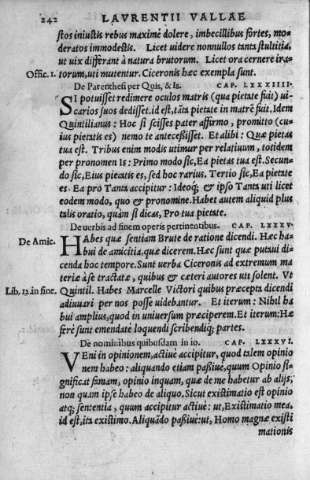 242 LAVRENTII VALLAE
stos iniustis rebus maximè dolere, imbecillibus fortes, mo-
deratos immodestis. Licet uidere nonnullos tanta stultitia,
ut uix differant à natura brutorum. Licet ora cernere ira-
Offic. 1. torum, ut mutentur. Ciceronis hæc exempla sunt.
De Parenthesi per Quis, & Is. CAP. LXXXIIII.
SI potuisset redimere oculos matris (qua pietate fuit) ui-
carios suos dedisset. id est, tāta pietate in matrē fuit. Idem
Quintilianus: Hoc si scisset pater affirmo, promitto (cu-
ius pietatis es) nemo te antecessisset. Et alibi: Quæ pietas
tua est. Tribus enim modis utimur per relatiuum, totidem
per pronomen Is: Primo modo sic, Ea pietas tua est. Secun-
do sic, Eius pietatis es, sed hoc rarius. Tertio sic, Ea pietate
es. Ea pro Tanta accipitur: Ideoq́;, & ipso Tanta uti licet
eodem modo, quo & pronomine. Habet autem aliquid plus
talis oratio, quàm si dicas, Pro tua pietate.
De uerbis ad finem operis pertinentibus. CAP. LXXXV.
De Amic. HAbes quæ sentiam Brute de ratione dicendi. Hæc ha-
bui de amicitia, quæ dicerem. Hæc sunt quæ putaui di-
cenda hoc tempore. Sunt uerba Ciceronis ad extremum ma
teriæ à se tractatæ, quibus & cæteri autores uti solent. Vt
Lib. 12 in fine. Quintil. Habes Marcelle Victori quibus præcepta dicendi
adiuuari per nos posse uidebantur. Et iterum: Nihil ha
bui amplius, quod in uniuersum præciperem. Et iterum: Hæ
ferè sunt emendatè loquendi scribendiq́; partes.
De nominibus quibusdam in io. CAP. LXXXVI.
VEni in opinionem, actiuè accipitur, quod talem opinio
nem habeo: aliquando etiam passiuè, quum Opinio si-
gnificat famam, opinio inquam, quæ de me habetur ab alijs,
non quam ipse habeo de aliquo. Sicut existimatio est opinio
atq́; sententia, quum accipitur actiuè: ut, Existimatio mea,
id est, ita existimo. Aliquādo passiuè: ut, Homo magnæ existi
mationis